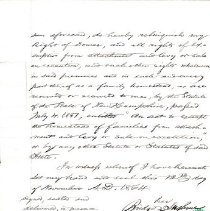 dom aforesaid, do hereby relinquish my
Right of Dower, and all right of ex-
emption from attachment and levy or sale
on execution, and such other rights whatsoever
in said premises and in each and every
part thereof as a family homestead, as are
secured to me, by the Statute
of the State of New Hampshire, passed
July 4, 1851, entitled "An act to exempt
the Homestead of families from attach-
ment and levy or sale on execution,"
or by any other Statute or Statutes of said
State.
In witness whereof I have hereunto
set my hand and seal this 12th day
of November A.D. 1864.
Signed, sealed and
delivered, in presence